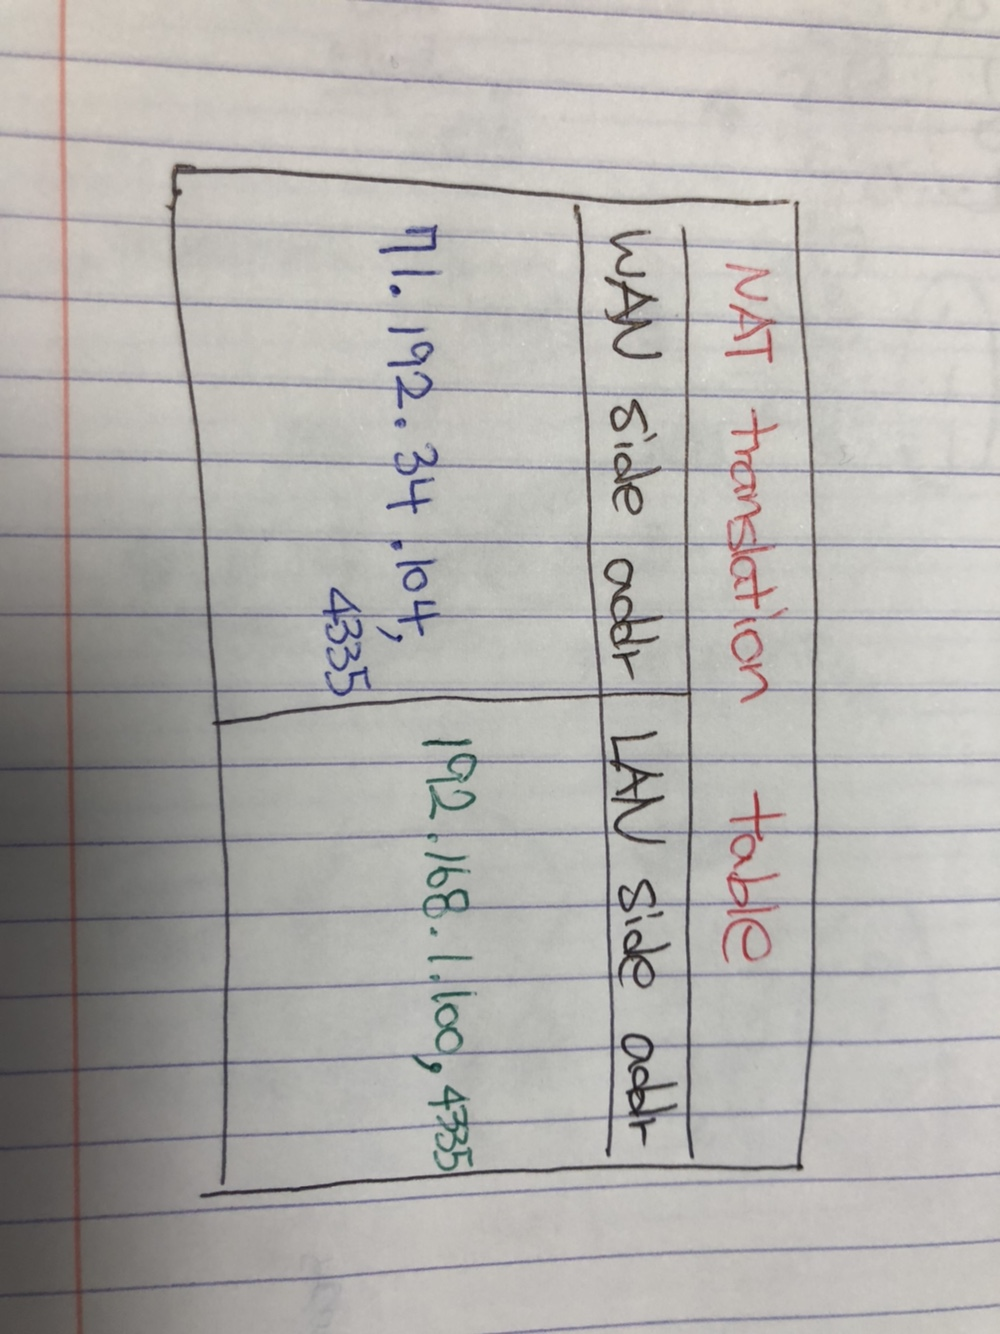 NAT translation table
WAN side addr
LAN side addr
71.192.34.104,
4335
192.168.1.100, 4335